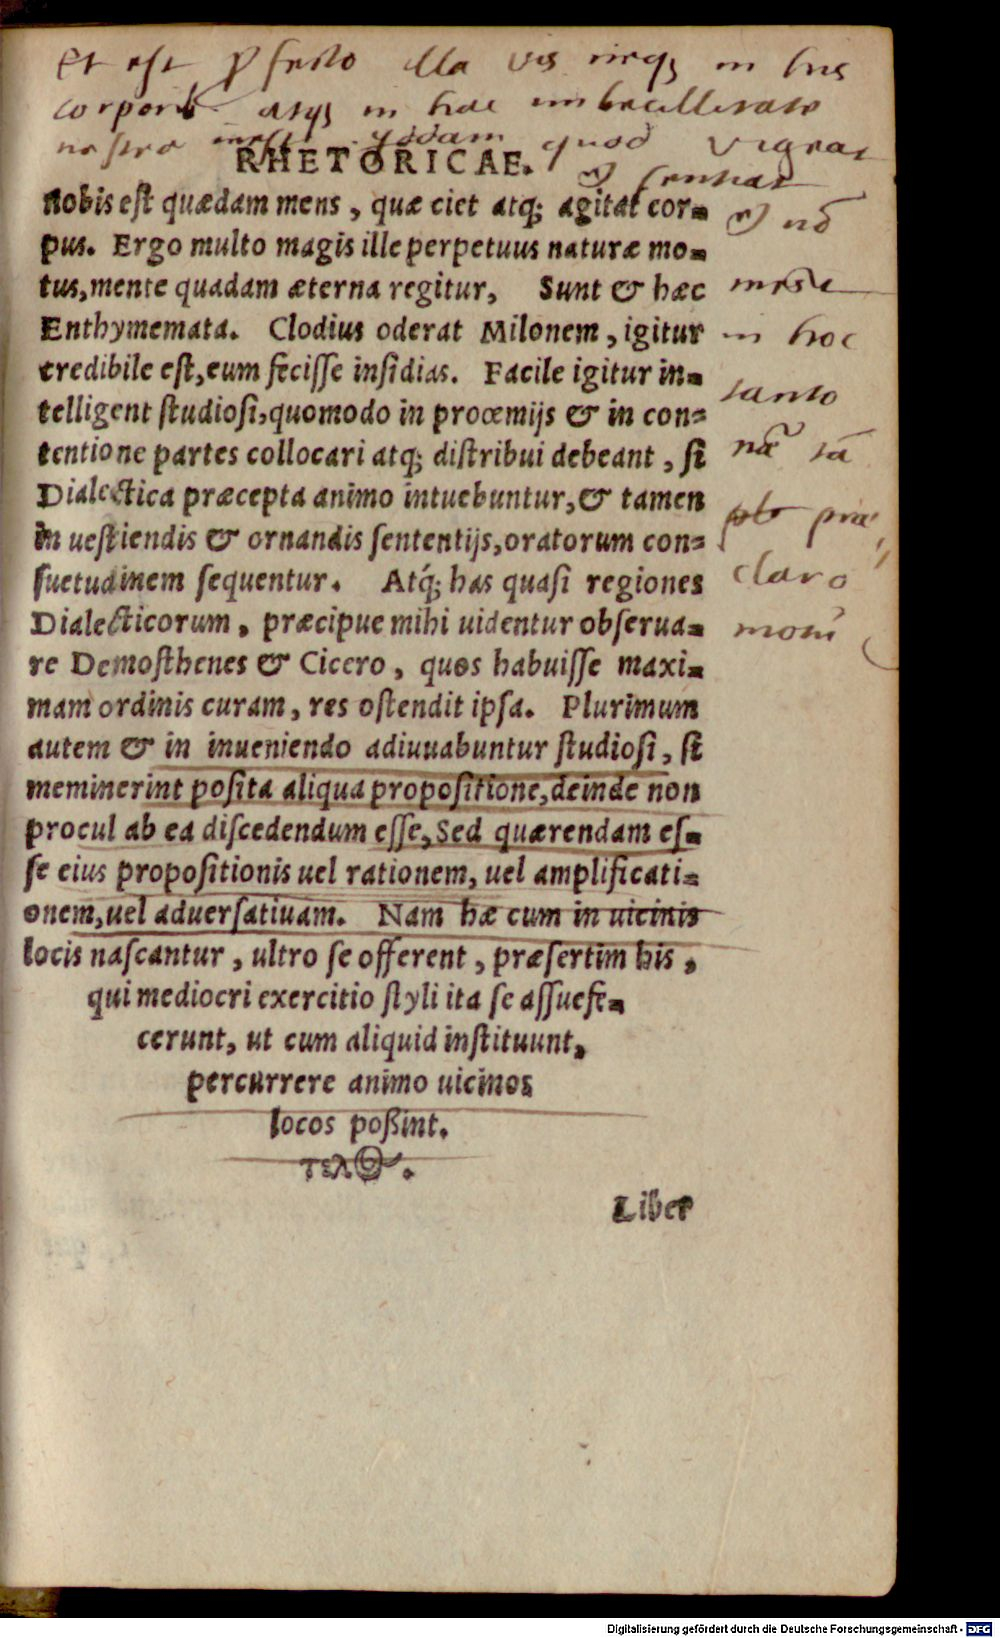 Et est ꝓfecto illa vis neqꝫ in his
corporib atqꝫ in hac imbecillitate
nostra inest qddam quod vigeat
& sentiat
& nō
inest
in hoc
tanto
nāe tā
præ
claro
motu
RHETORICAE.
nobis est quædam mens, quæ ciet atq; agitat cor-
pus. Ergo multo magis ille perpetuus naturæ mo-
tus, mente quadam æterna regitur, Sunt & hæc
Enthymemata. Clodius oderat Milonem, igitur
credibile est, eum fecisse insidias. Facile igitur in-
telligent studiosi, quomodo in proœmijs & in con-
tentione partes collocari atq; distribui debeant, si
Dialectica præcepta animo intuebuntur, & tamen
in uestiendis & ornandis sententijs, oratorum con-
suetudinem sequentur. Atq́; has quasi regiones
Dialecticorum, præcipue mihi uidentur obserua-
re Demosthenes & Cicero, quos habuisse maxi-
mam ordinis curam, res ostendit ipsa. Plurimum
autem & in inueniendo adiuuabuntur studiosi, si
meminerint posita aliqua propositione, deinde non
procul ab ea discedendum esse, Sed quærendam es-
se eius propositionis uel rationem, uel amplificati-
onem, uel aduersatiuam. Nam hæ cum in uicinis
locis nascantur, ultro se offerent, præsertim his,
qui mediocri exercitio styli ita se assuefe-
cerunt, ut cum aliquid instituunt,
percurrere animo uicinos
locos poßint.
τελος.
Liber
Digitalisierung gefördert durch die Deutsche Forschungsgemeinschaft - DFG